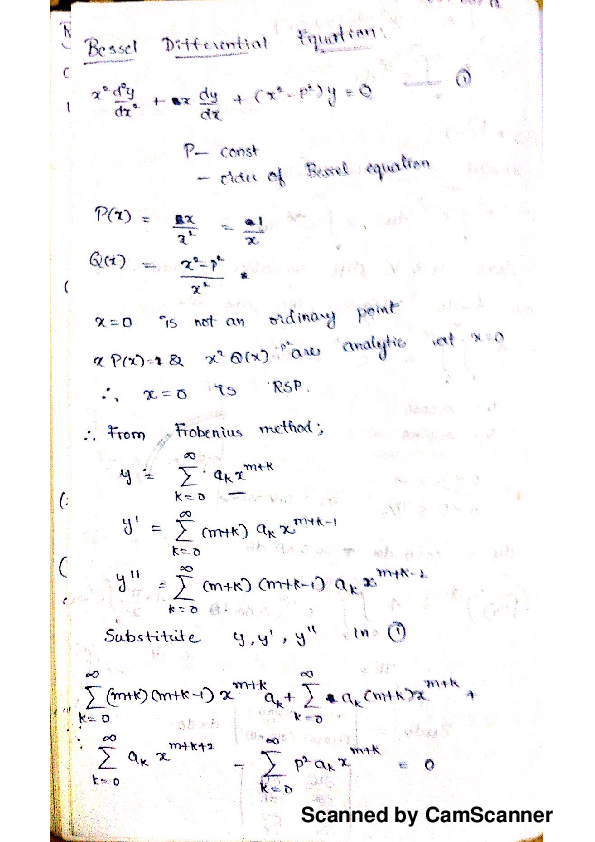 Bessel Differential Equation:
x² d²y/dx² + x dy/dx + (x² - p²) y = 0 — ①
P - const
- order of Bessel equation
P(x) = x/x² = 1/x
Q(x) = x² - p²/x²
x=0 is not an ordinary point
x P(x)=1 & x² Q(x) -p² are analytic at x=0
∴ x=0 is RSP.
∴ From Frobenius method;
y = ∑_{k=0}^{∞} a_k x^{m+k}
y' = ∑_{k=0}^{∞} (m+k) a_k x^{m+k-1}
y'' = ∑_{k=0}^{∞} (m+k) (m+k-1) a_k x^{m+k-2}
Substitute y, y', y'' in ①
∑_{k=0}^{∞} (m+k) (m+k-1) x^{m+k} a_k + ∑_{k=0}^{∞} a_k (m+k) x^{m+k} +
∑_{k=0}^{∞} a_k x^{m+k+2} - ∑_{k=0}^{∞} p² a_k x^{m+k} = 0
Scanned by CamScanner